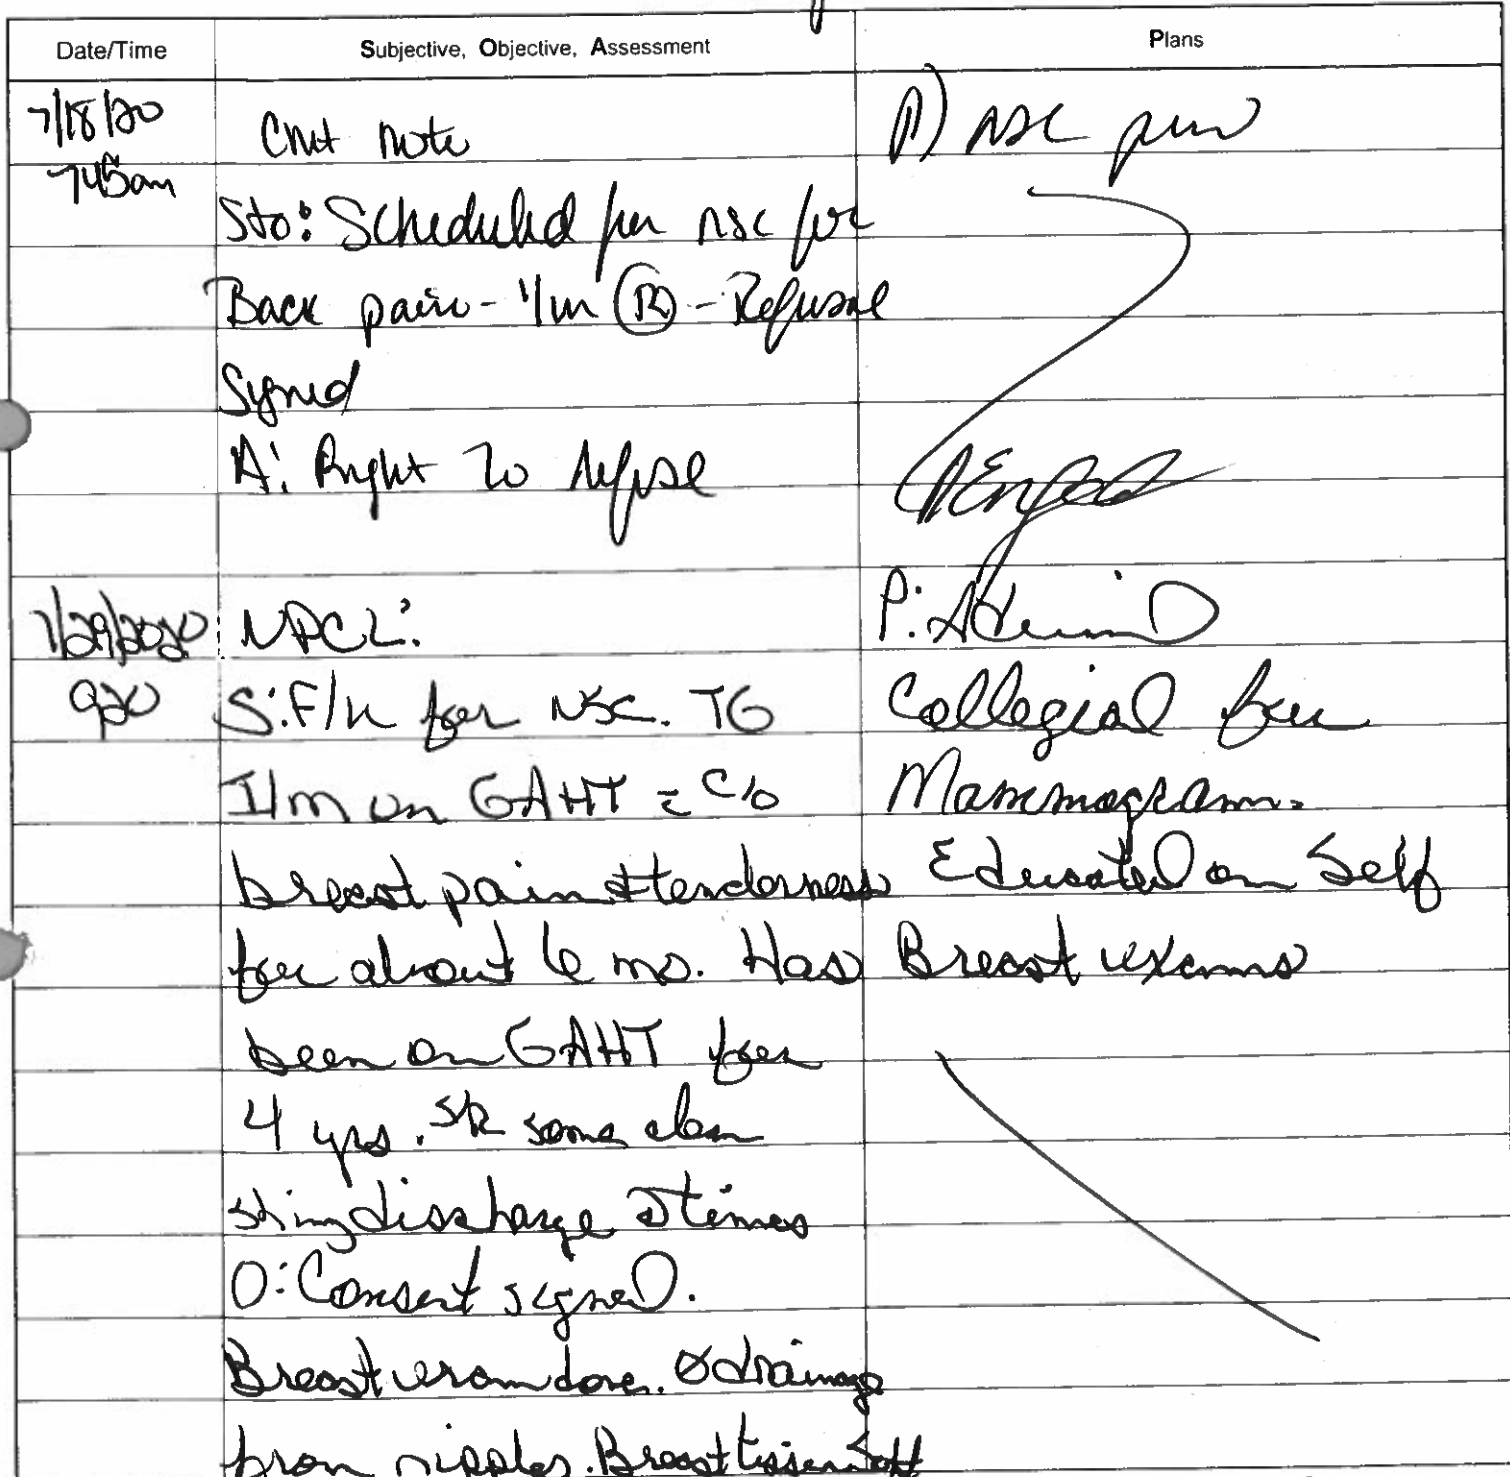 Date/Time
Subjective, Objective, Assessment
Plans
7/18/20
745am
CMT note
S+O: Scheduled for NSC for
Back pain - I/m Ⓡ - Refusal
signed
A: Right to refuse
P) NSC prn
7/29/2020
920
NPCL:
S: F/u for NSC. TG
I/m on GAHT c̄ c/o
breast pain + tenderness
for about 6 mo. Has
been on GAHT for
4 yrs. some clear
discharge @ times
O: Consent signed.
Breast exam done. Ø drainage
from nipples. Breast tissue soft
P:
Collegial for
Mammogram.
Educated on Self
Breast exams